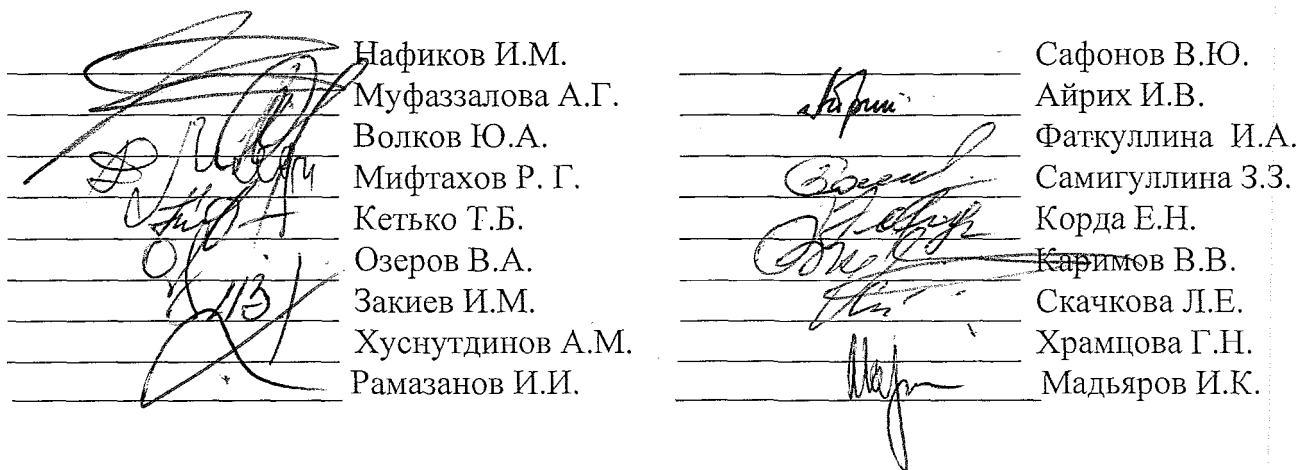 Нафиков И.М.
Муфаззалова А.Г.
Волков Ю.А.
Мифтахов Р. Г.
Кетько Т.Б.
Озеров В.А.
Закиев И.М.
Хуснутдинов А.М.
Рамазанов И.И.
Сафонов В.Ю.
Айрих И.В.
Фаткуллина И.А.
Самигуллина З.З.
Корда Е.Н.
Каримов В.В.
Скачкова Л.Е.
Храмцова Г.Н.
Мадьяров И.К.